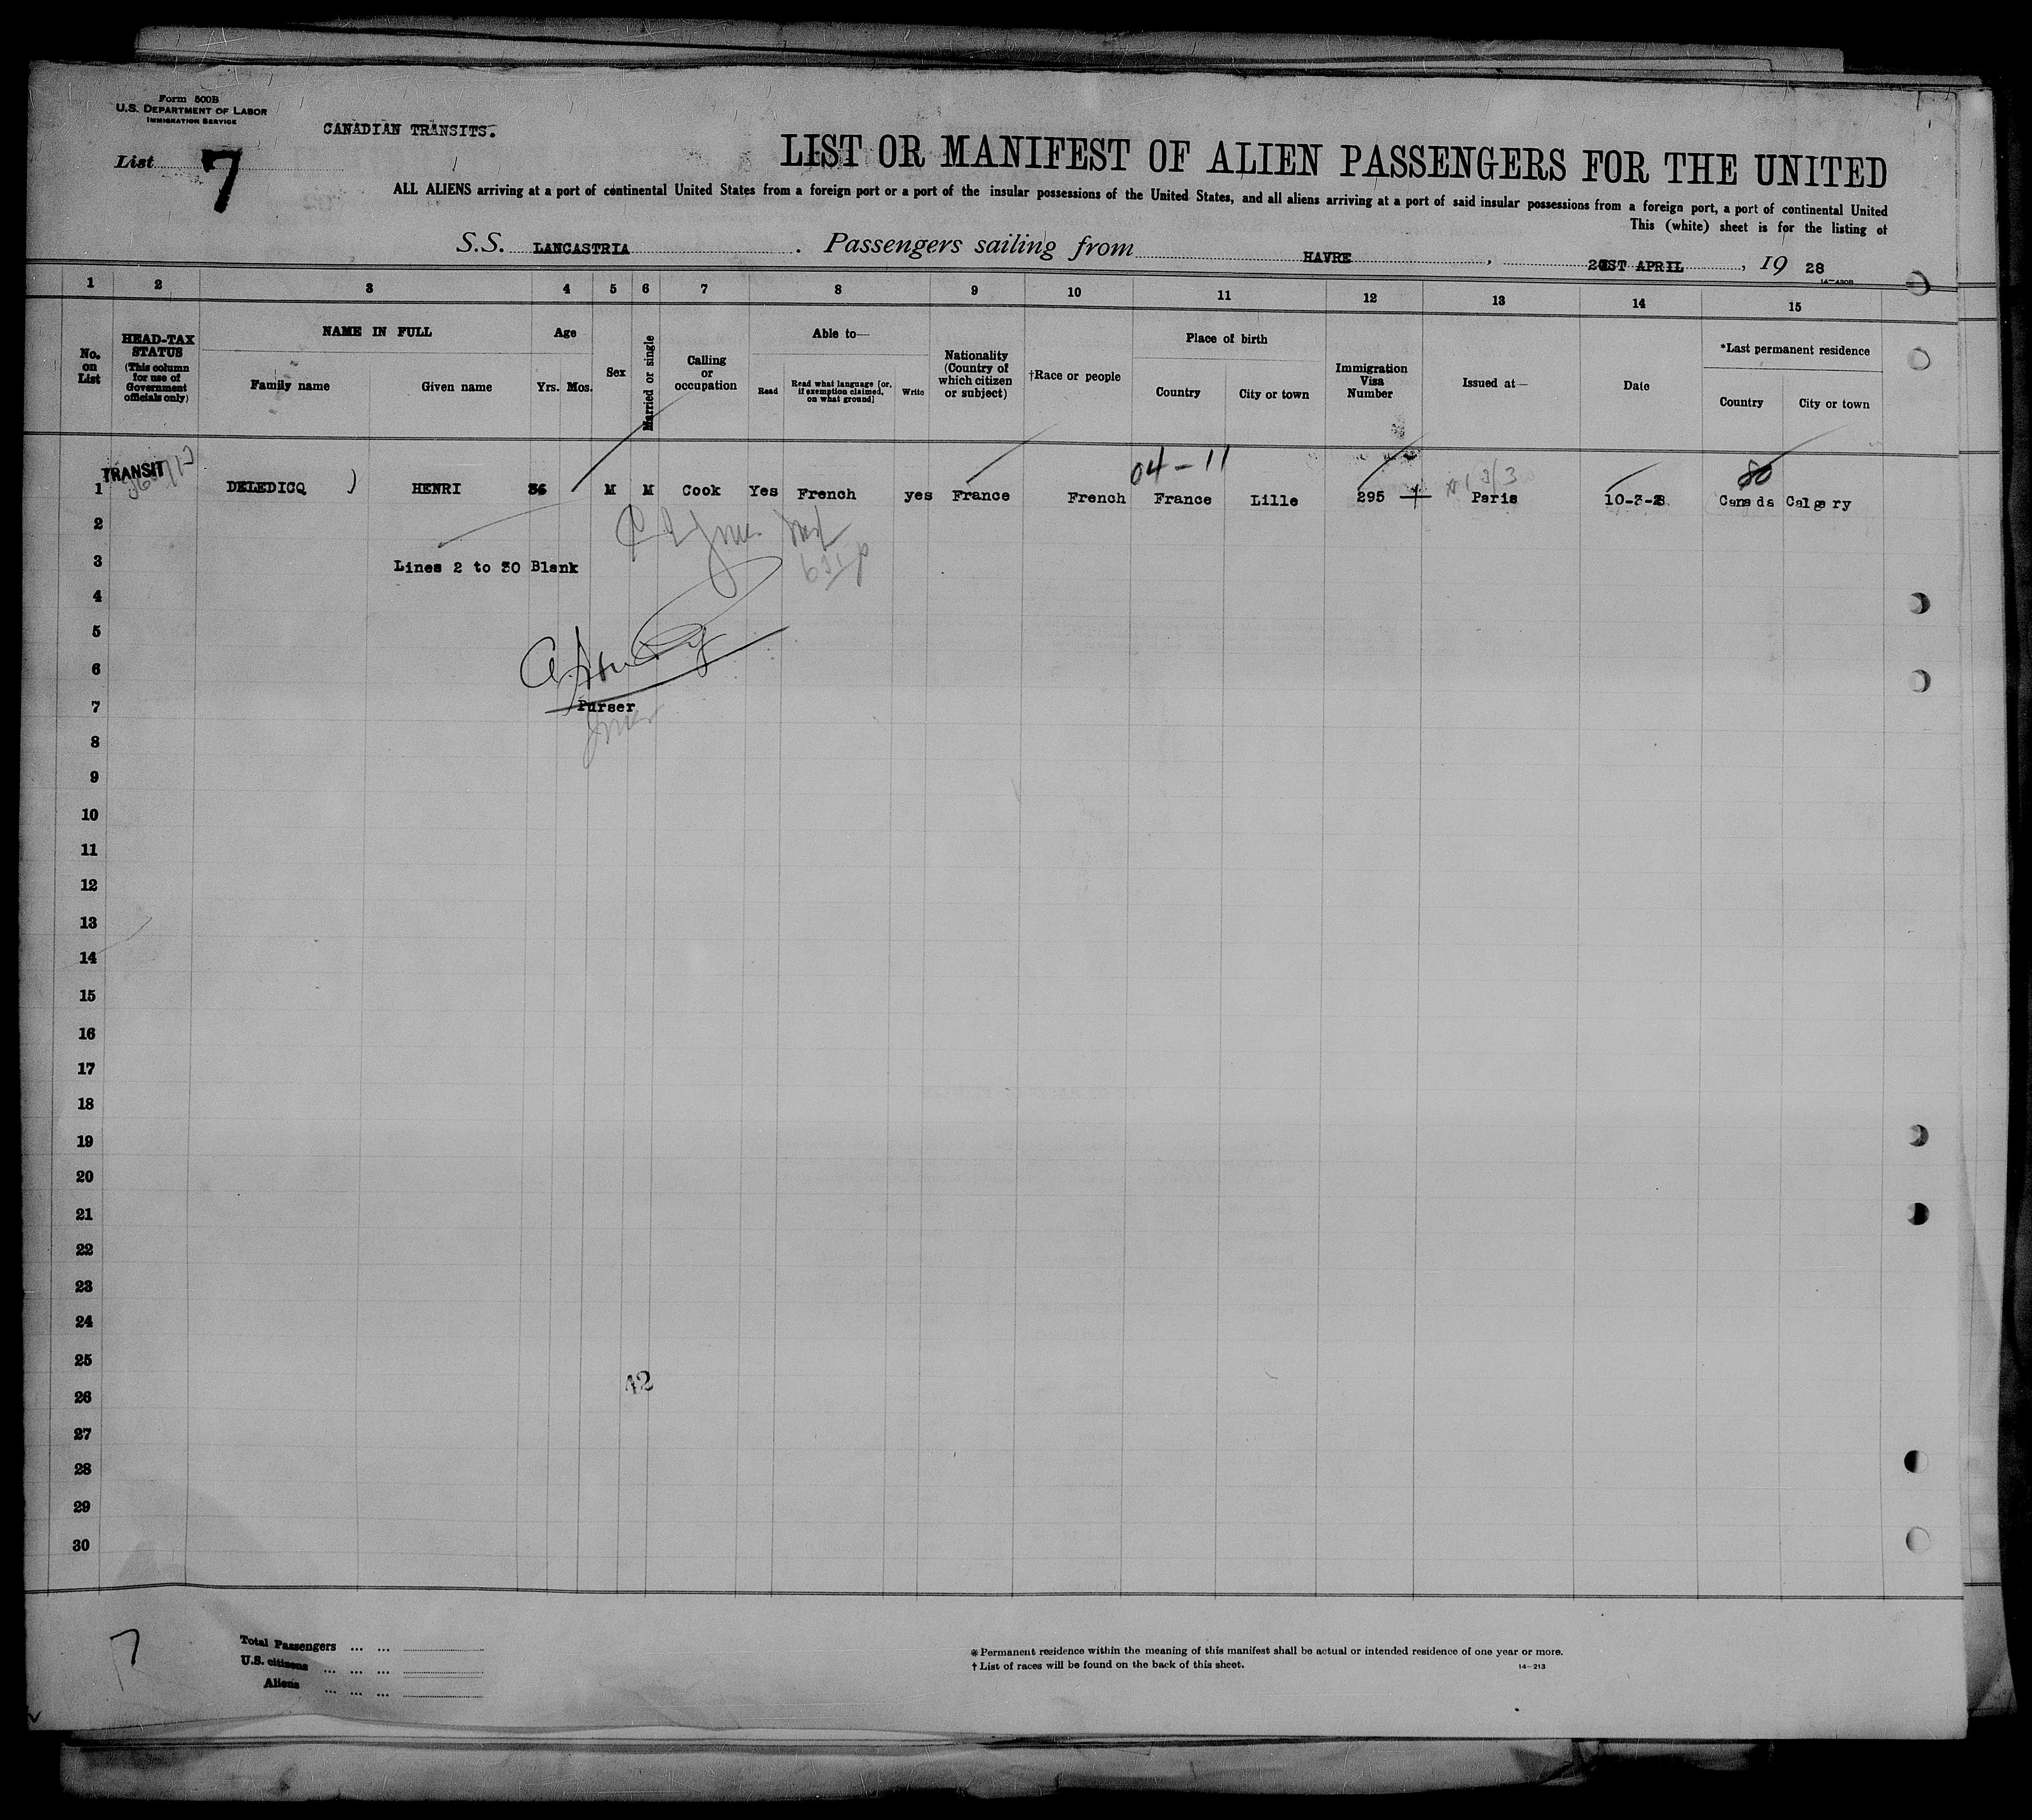 Form 500B
U.S. DEPARTMENT OF LABOR
IMMIGRATION SERVICE
CANADIAN TRANSITS.
List 7
LIST OR MANIFEST OF ALIEN PASSENGERS FOR THE UNITED
ALL ALIENS arriving at a port of continental United States from a foreign port or a port of the insular possessions of the United States, and all aliens arriving at a port of said insular possessions from a foreign port, a port of continental United
This (white) sheet is for the listing of
S.S. LANCASTRIA. Passengers sailing from HAVRE, APRIL, 19 28
1 2 3 4 5 6 7 8 9 10 11 12 13 14 15
No. on List
HEAD-TAX STATUS (This column for use of Government officials only)
NAME IN FULL
Family name Given name
Age
Yrs. Mos.
Sex
Married or single
Calling or occupation
Able to—
Read Read what language [or, if exemption claimed, on what ground] Write
Nationality (Country of which citizen or subject)
†Race or people
Place of birth
Country City or town
Immigration Visa Number
Issued at—
Date
*Last permanent residence
Country City or town
04-11
TRANSIT
1 DELEDICQ ) HENRI 36 M M Cook Yes French yes France French France Lille 295 Paris Canada Calgary
2
3 Lines 2 to 30 Blank
4
5
6
7 Purser
8
9
10
11
12
13
14
15
16
17
18
19
20
21
22
23
24
25
42
26
27
28
29
30
7
Total Passengers ... ...
U.S. citizens ... ... ...
Aliens ... ... ...
* Permanent residence within the meaning of this manifest shall be actual or intended residence of one year or more.
† List of races will be found on the back of this sheet.
14-213